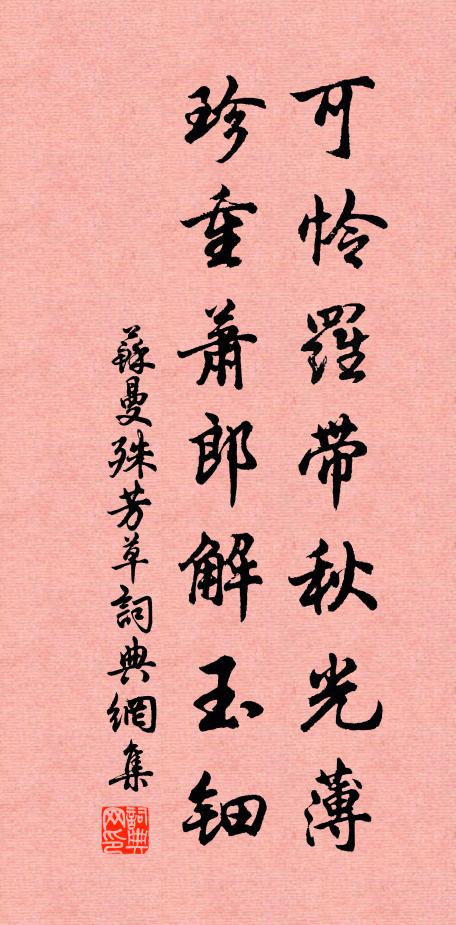 可怜羅帶秋光薄
珍重蕭郎解玉钿
蘇曼殊芳草詞典網集
詞典網印